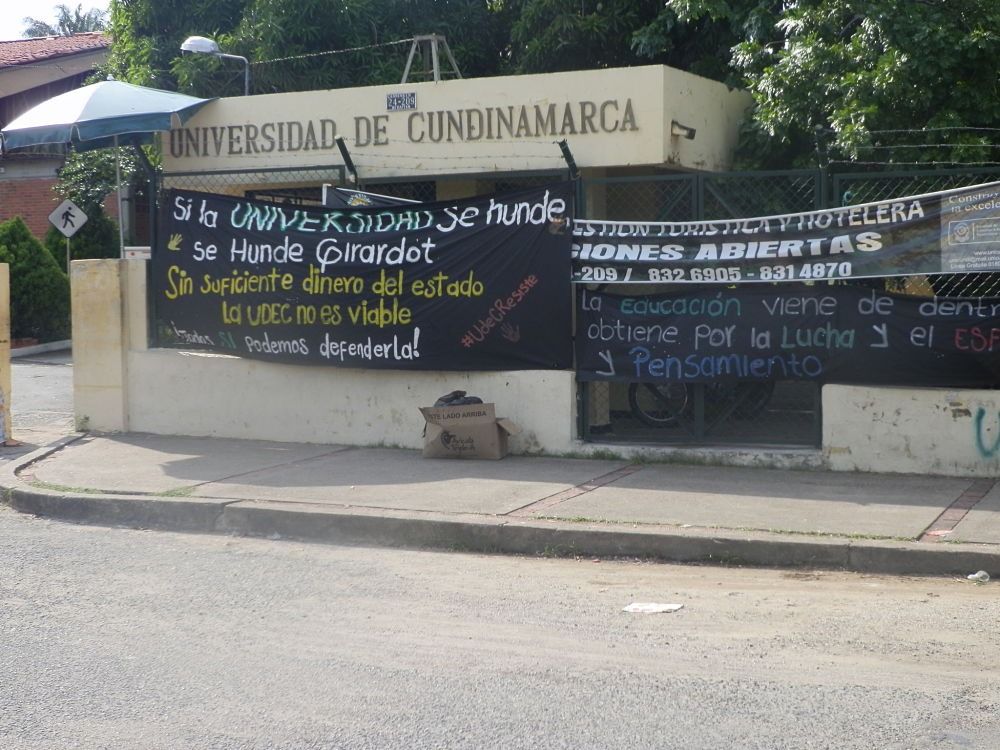 24-206
UNIVERSIDAD DE CUNDINAMARCA
Si la UNIVERSIDAD se hunde,
se Hunde Girardot
Sin suficiente dinero del estado
la UDEC no es viable
SI Podemos defenderla!
#UdeCResiste
GESTIÓN TURÍSTICA Y HOTELERA
IONES ABIERTAS
-209 / 832 6905 - 831 4870
Construc
la excele
La Educación viene de dentr
obtiene por la Lucha y el ESF
y Pensamiento
STE LADO ARRIBA